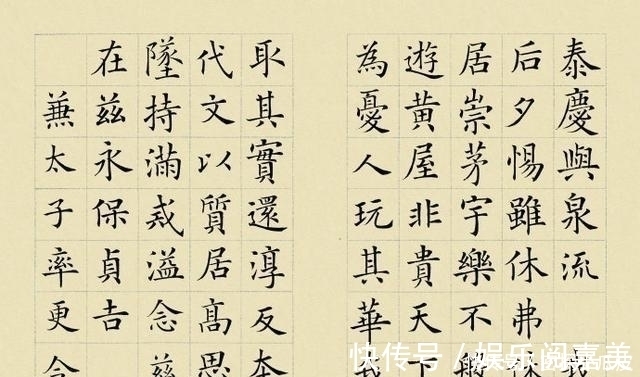 泰慶與泉流我
后夕惕雖休弗休
居崇茅宇樂不般
遊黃屋非貴天下
為憂人玩其華我
取其實還淳反本
代文以質居高思
墜持滿戒溢念茲
在茲永保貞吉
兼太子率更令
快传号 / 娱乐阅嘉美